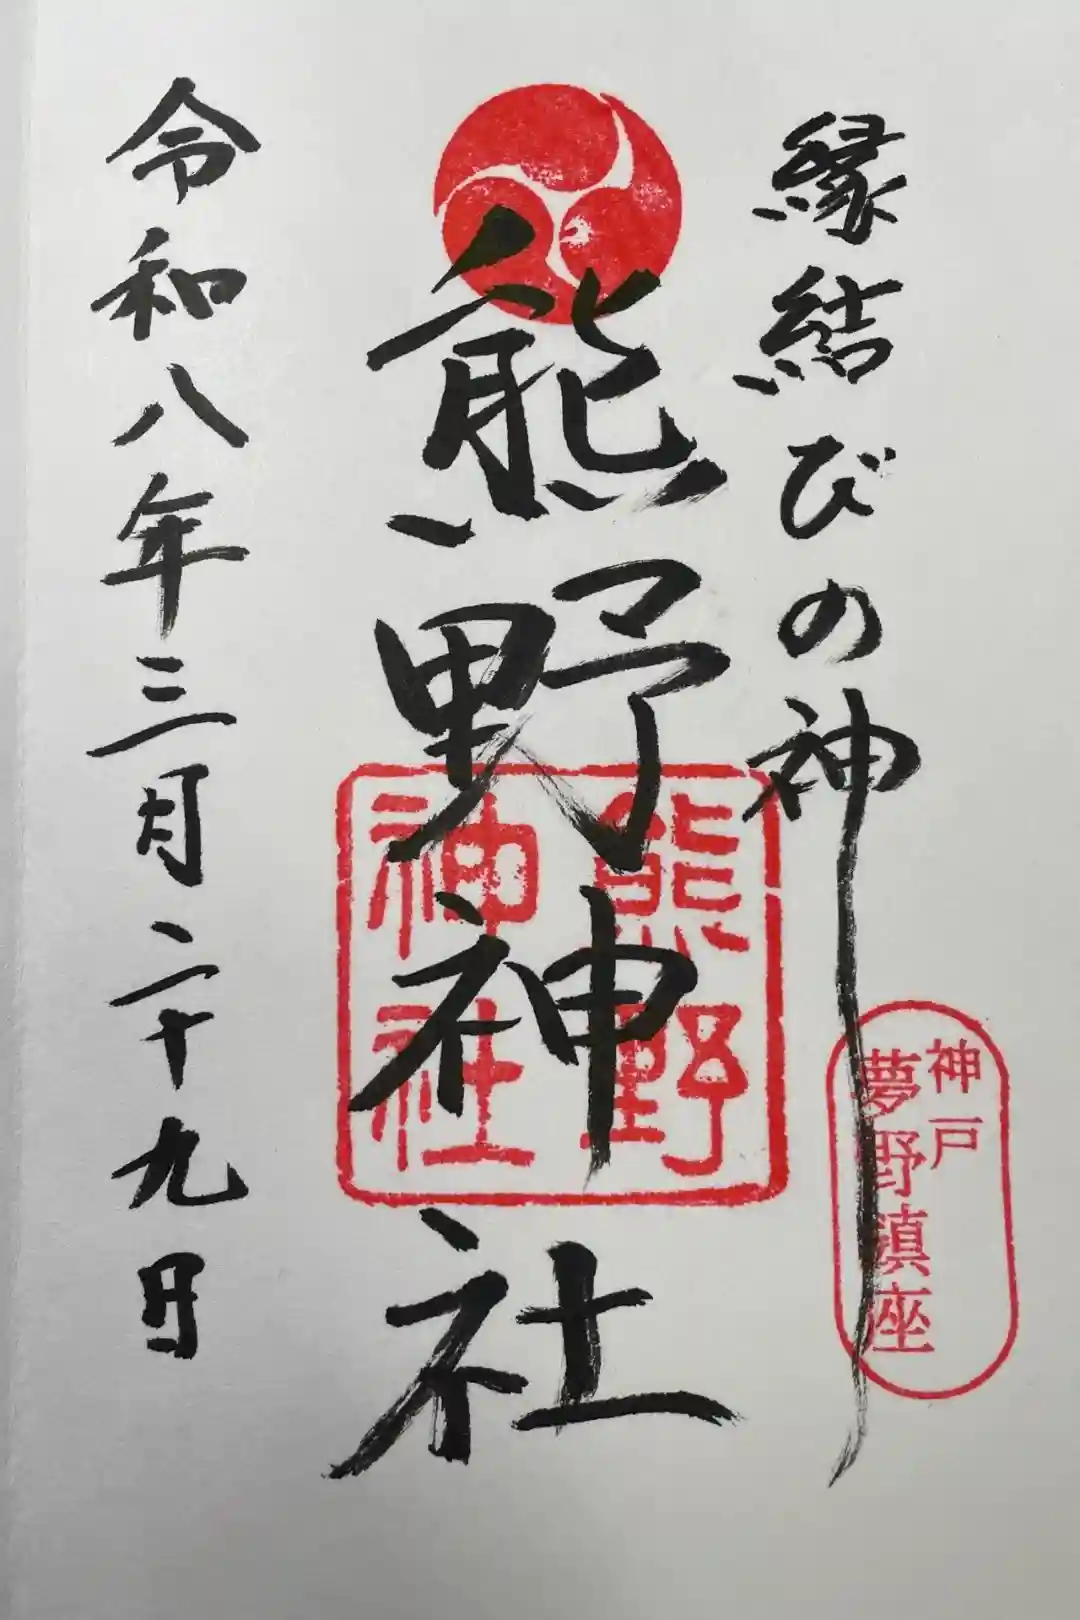 縁結びの神
神戸
夢野鎮座
熊野神社
熊野
神社
令和八年三月二十九日